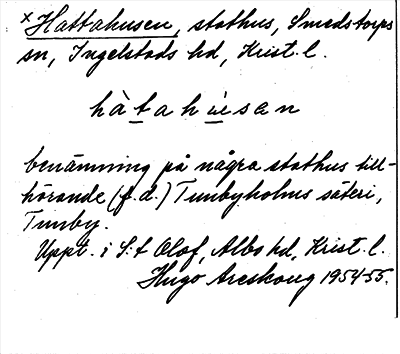 × Hattahusen, stathus, Smedstorps
sn, Ingelstads hd, Krist. l.
hàtahùsen
benämning på några stathus till-
hörande (f.d.) Tunbyholms säteri,
Tunby.
Uppt. i S:t Olof, Albo hd, Krist. l.
Hugo Areskoug 1954-55.